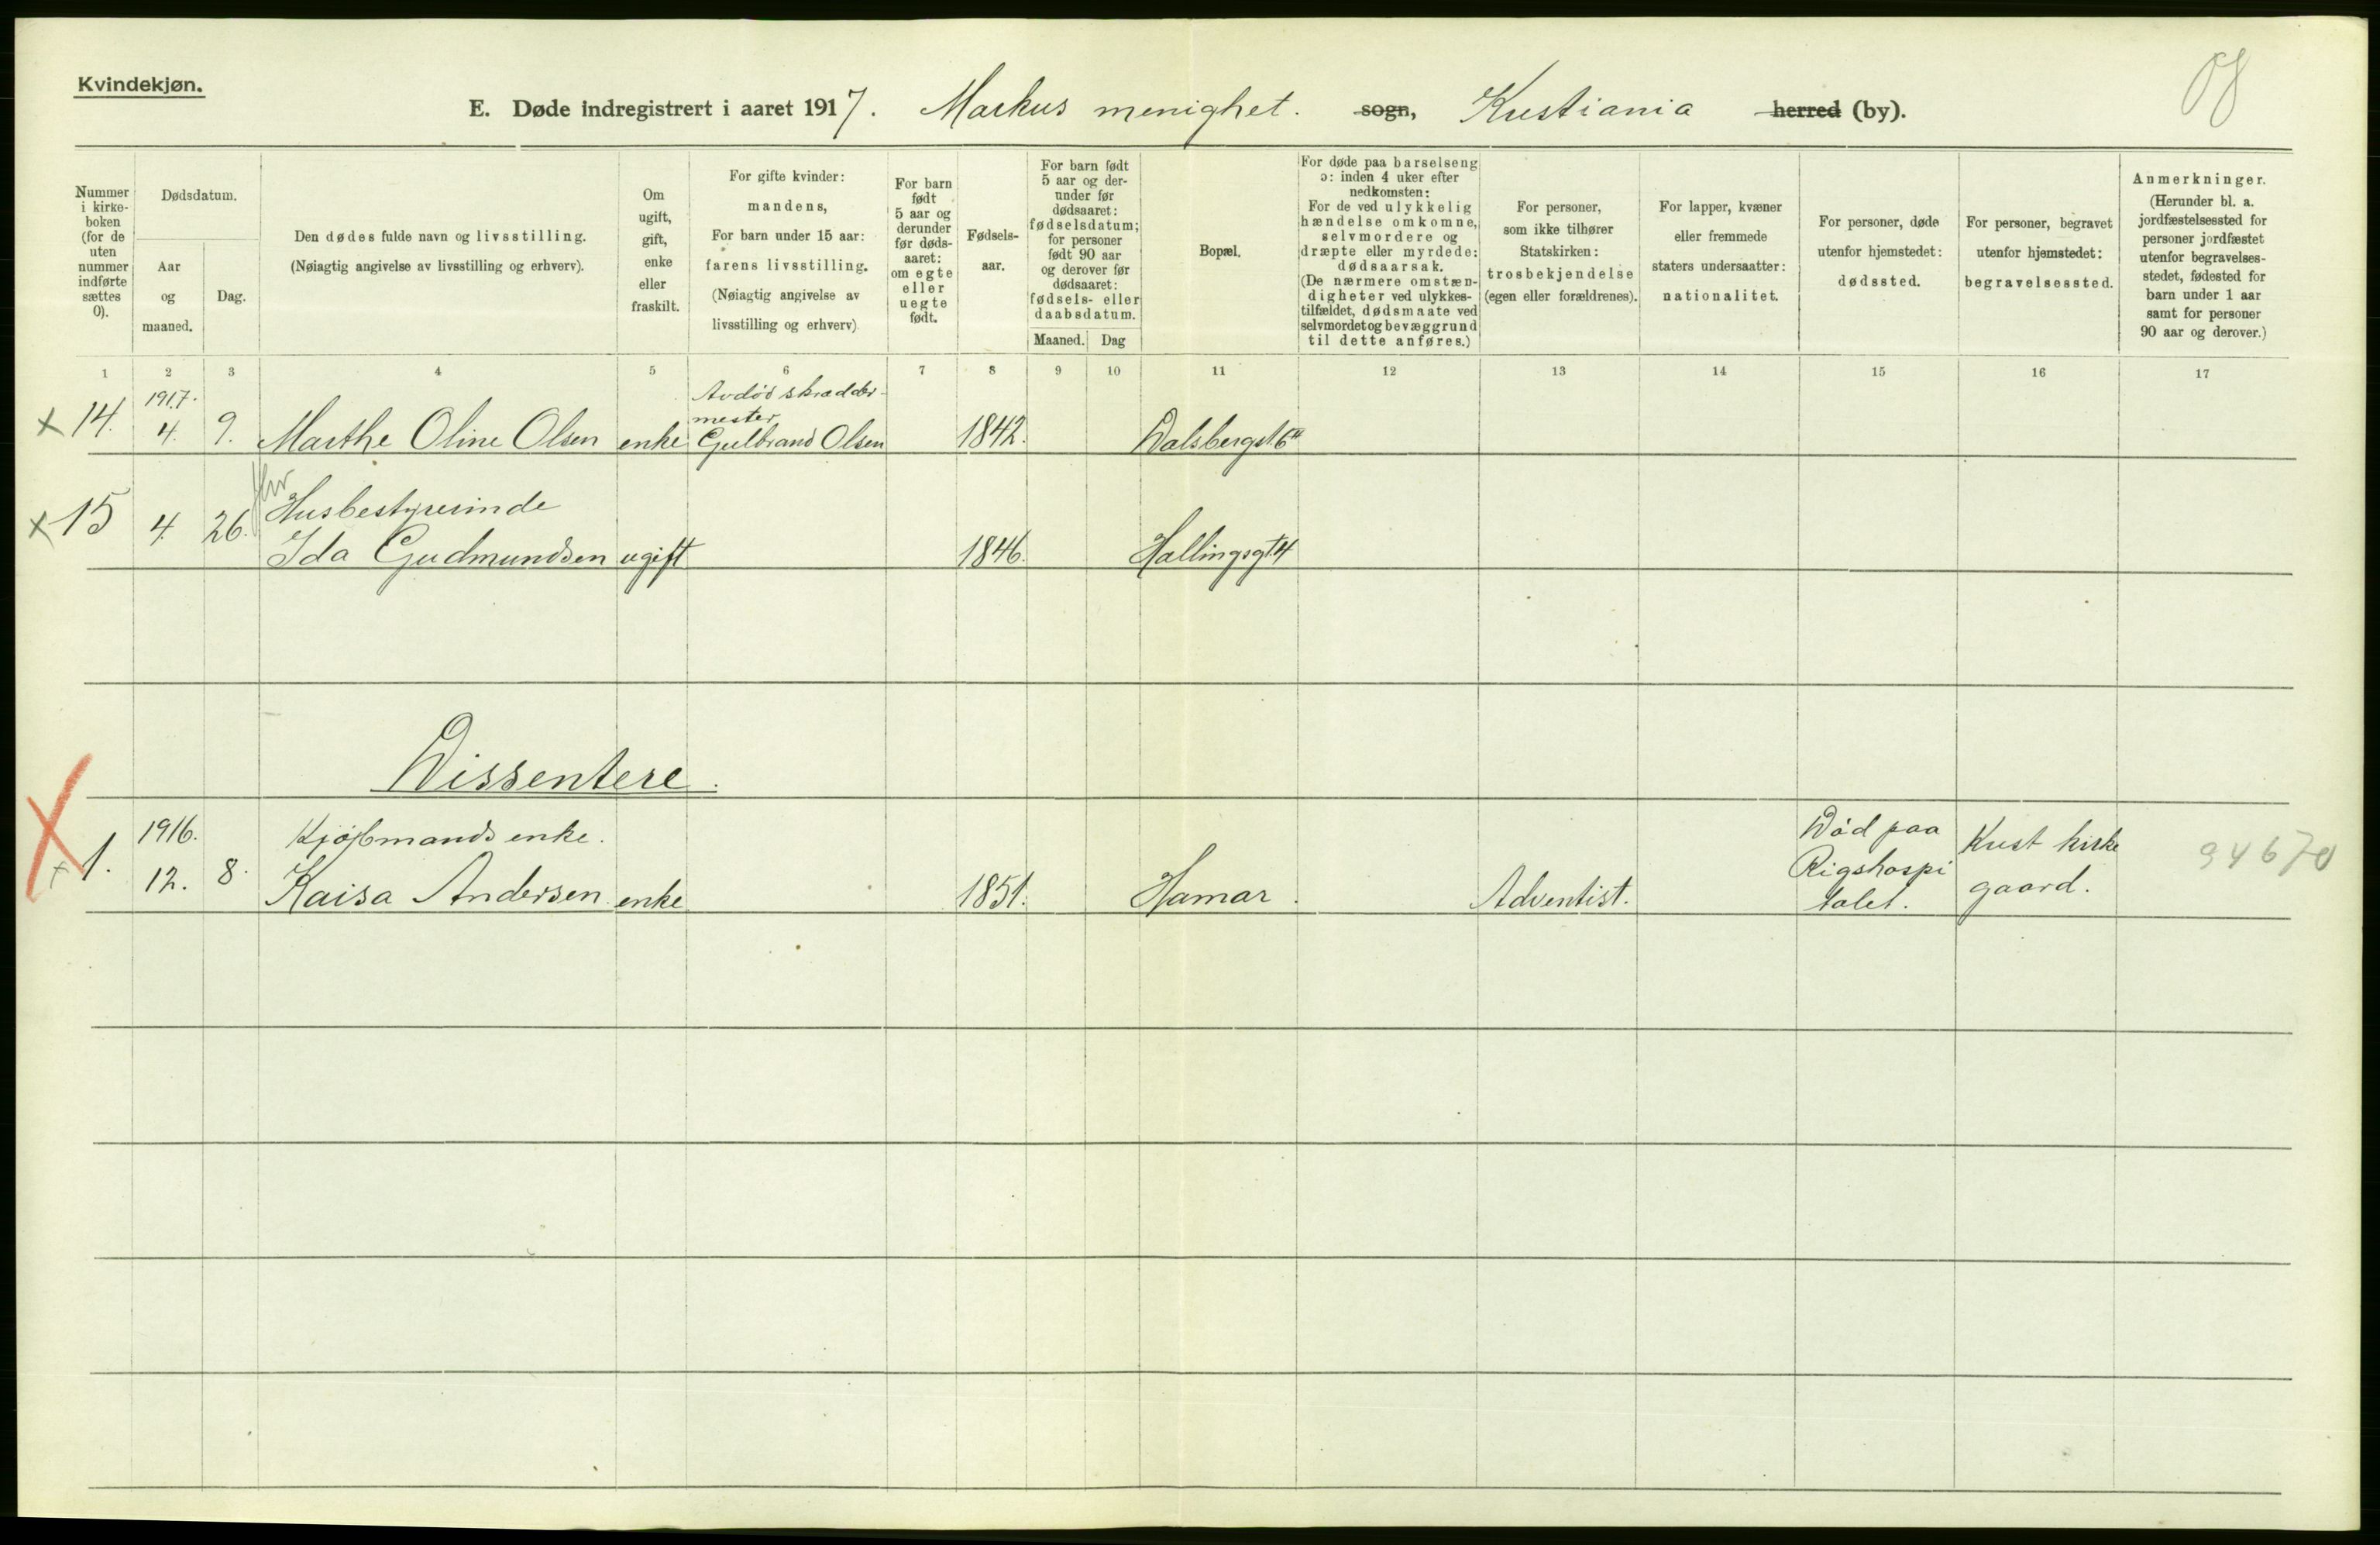 Kvindekjøn.
E. Døde indregistrert i aaret 1917. Markus menighet. sogn, Kristiania herred (by).
Nummer
i kirke-
boken
(for de
uten
nummer
indførte
sættes
0).
Dødsdatum.
Aar
og
maaned.
Dag.
Den dødes fulde navn og livsstilling.
(Nøiagtig angivelse av livsstilling og erhverv).
Om
ugift,
gift,
enke
eller
fraskilt.
For gifte kvinder:
mandens,
For barn under 15 aar:
farens livsstilling.
(Nøiagtig angivelse av
livsstilling og erhverv)
For barn
født
5 aar og
derunder
før døds-
aaret:
om egte
eller
uegte
født.
Fødsels-
aar.
For barn født
5 aar og der-
under før
dødsaaret:
fødselsdatum;
for personer
født 90 aar
og derover før
dødsaaret:
fødsels- eller
daabsdatum.
Maaned. Dag
Bopæl.
For døde paa barselseng
ɔ: inden 4 uker efter
nedkomsten:
For de ved ulykkelig
hændelse omkomne,
selvmordere og
dræpte eller myrdede:
dødsaarsak.
(De nærmere omstæn-
digheter ved ulykkes-
tilfældet, dødsmaate ved
selvmordet og bevæggrund
til dette anføres.)
For personer,
som ikke tilhører
Statskirken:
trosbekjendelse
(egen eller forældrenes).
For lapper, kvæner
eller fremmede
staters undersaatter:
nationalitet.
For personer, døde
utenfor hjemstedet:
dødssted.
For personer, begravet
utenfor hjemstedet:
begravelsessted.
Anmerkninger.
(Herunder bl. a.
jordfæstelsessted for
personer jordfæstet
utenfor begravelses-
stedet, fødested for
barn under 1 aar
samt for personer
90 aar og derover.)
1 2 3 4 5 6 7 8 9 10 11 12 13 14 15 16 17
1917. Avdød skrædder-
mester
x 14. 4. 9. Marthe Oline Olsen enke Gulbrand Olsen 1842. Dalsbergst. 6
Husbestyrerinde
x 15 4. 26. Ida Gudmundsen ugift 1846. Hallingsgt 4
Dissentere.
1916. Kjøbmands enke. Død paa Krist kirke
x 1. 12. 8. Kaisa Andersen enke 1851. Hamar. Adventist. Rigshospi
talet. gaard.